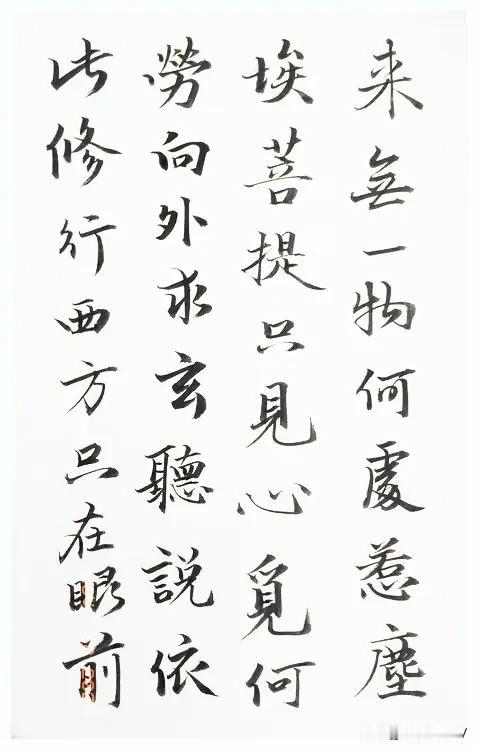 来無一物何處惹塵
埃菩提只見心覓何
勞向外求玄聽說依
此修行西方只在眼前